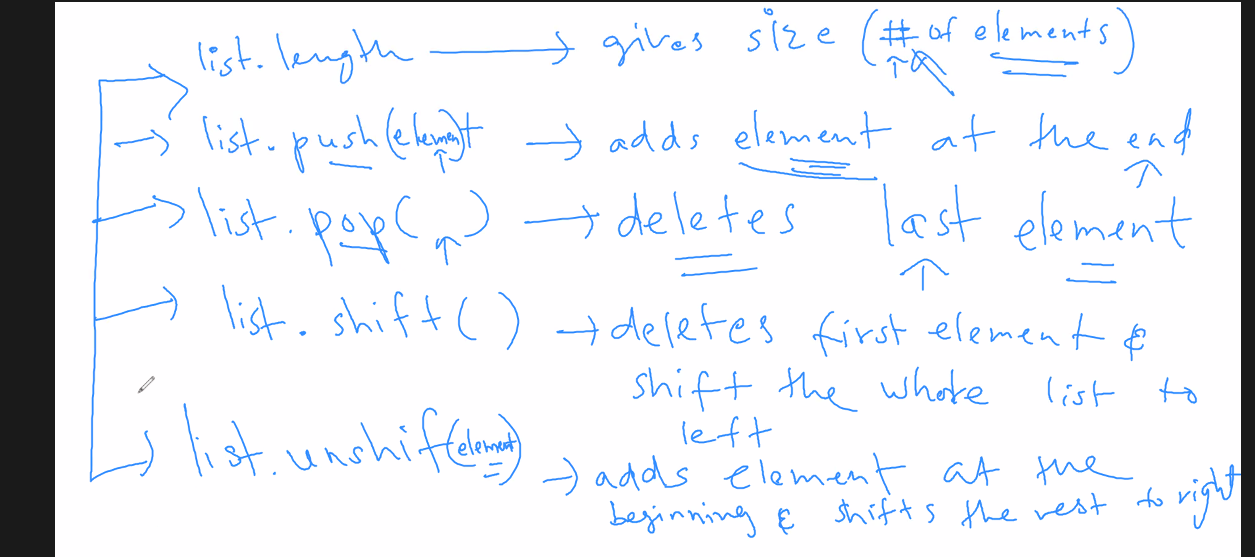 list.length → gives size (# of elements)
→ list.push(element) → adds element at the end
→ list.pop( ) → deletes last element
→ list.shift( ) → deletes first element &
shift the whole list to
left
→ list.unshif(element) → adds element at the
beginning & shifts the rest to right